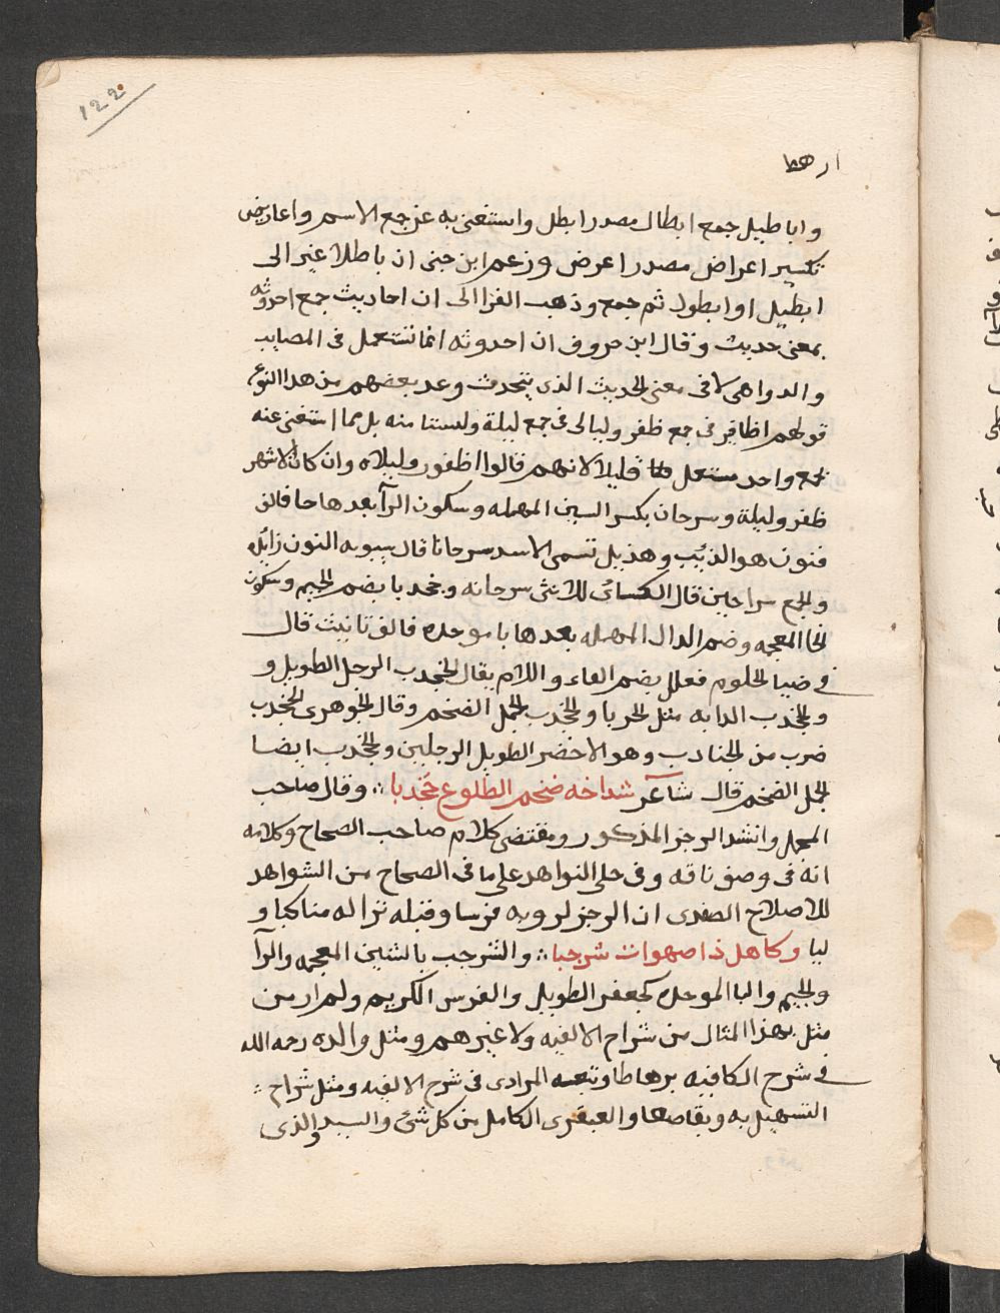 122
ارهط
واباطيل جمع ابطال مصدر ابطل واستغنى به عن جمع الاسم واعاريض
تكسير اعراض مصدر اعرض وزعم ابن جنى ان باطلا غير الى
ابطيل او ابطول ثم جمع وذهب الفرا الى ان احاديث جمع احدوثه
بمعنى حديث وقال ابن خروف ان احدوثه انما تستعمل فى المصايب
والدواهى لا فى معنى الحديث الذى يتحدث وعد بعضهم من هدا النوع
قولهم اظافير فى جمع ظفر وليالى فى جمع ليلة وليستا منه بل مما استغنى عنه
بجمع واحد مستعمل قليلا لانهم قالوا اظفور وليلاه وان كان الاشهر
ظفر وليلة وسرحان بكسر السين المهمله وسكون الرآ بعدها حا فالف
فنون هو الذيب وهذيل تسمى الاسد سرحانا قال سيبويه النون زايده
والجمع سراحين قال الكسائى للانثى سرحانه وجخدبا بضم الجيم وسكون
الخا المعجمه وضم الدال المهمله بعدها با موحده فالف تانيث قال
فى ضيا الحلوم فعلل بضم الفاء واللام يقال الجخدب الرجل الطويل و
والجخدب الدابه مثل الحربا والجخدب الجمل الضخم وقال الجوهرى الجخدب
ضرب من الجنادب وهو الاخضر الطويل الرجلين والجخدب ايضا
الجمل الضخم قال شاعر شداخه ضخم الضلوع جخدبا ∴ وقال صاحب
المجمل وانشد الرجز المذكور ومقتضى كلام صاحب الصحاح وكلامه
انه فى وصف ناقه وفى حلى النواهد على ما فى الصحاح من الشواهد
للاصلاح الصفدى ان الرجز لرويه فرسا وقبله ترا له مناكبا و
لبا وكاهل ذا صهوات شرجبا ∴ والشرجب بالشين المعجمه والرآ
والجيم والبا الموحده كجعفر الطويل والفرس الكريم ولم ار من
مثل بهذا المثال من شراح الالفيه ولا غيرهم ومثل والده رحمه الله
فى شرح الكافيه برهاطا وتبعه المرادى فى شرح الالفيه ومثل شراح
التسهيل به وبقاصعا والعبقرى الكامل من كل شئ والسيد والذى